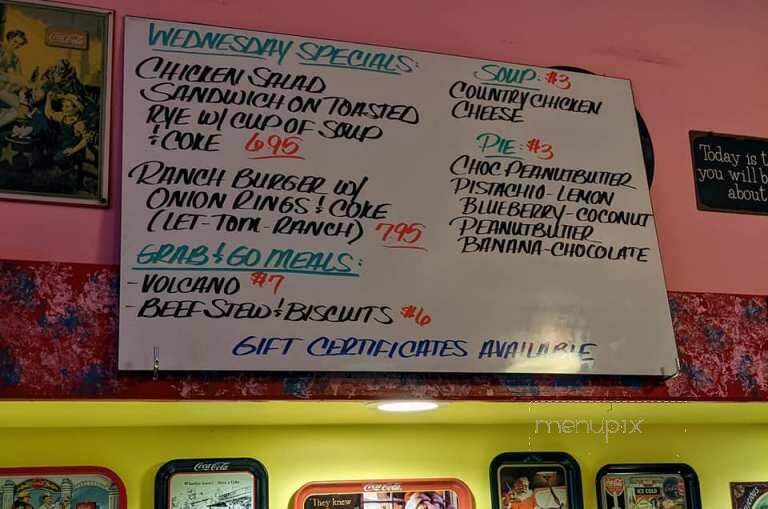 Coca-Cola
WEDNESDAY SPECIALS:
CHICKEN SALAD
SANDWICH ON TOASTED
RYE W/ CUP OF SOUP
& COKE 6.95
RANCH BURGER W/
ONION RINGS & COKE
(LET-TOM-RANCH) 7.95
GRAB & GO MEALS:
- VOLCANO $7
- BEEF STEW & BISCUITS $6
SOUP: $3
COUNTRY CHICKEN
CHEESE
PIE: $3
CHOC PEANUTBUTTER
PISTACHIO - LEMON
BLUEBERRY - COCONUT
PEANUTBUTTER
BANANA - CHOCOLATE
GIFT CERTIFICATES AVAILABLE
Today is t
you will b
about
menupix
Coca-Cola
Coca-Cola
They knew
ICE COLD